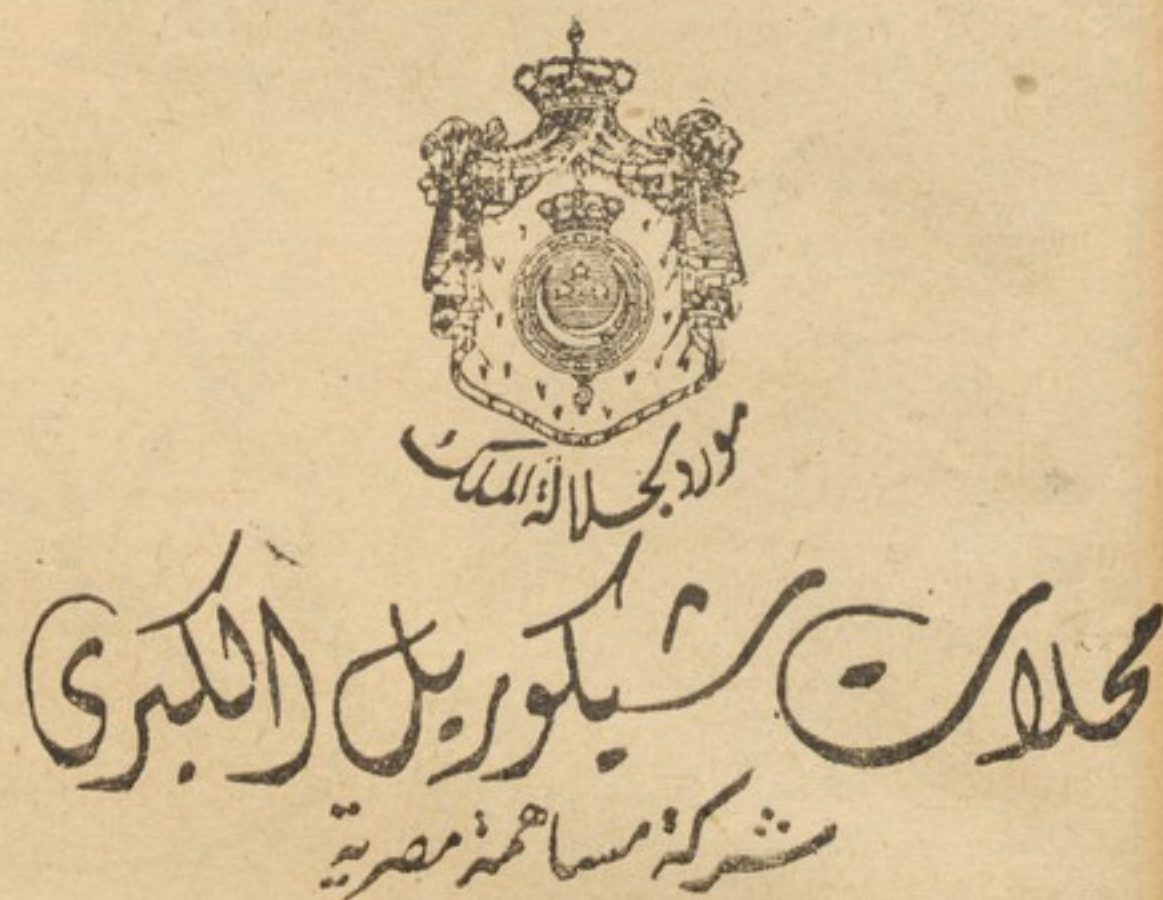 مورد لجلالة الملك
محلات شيكوريل الكبرى
شركة مساهمة مصرية